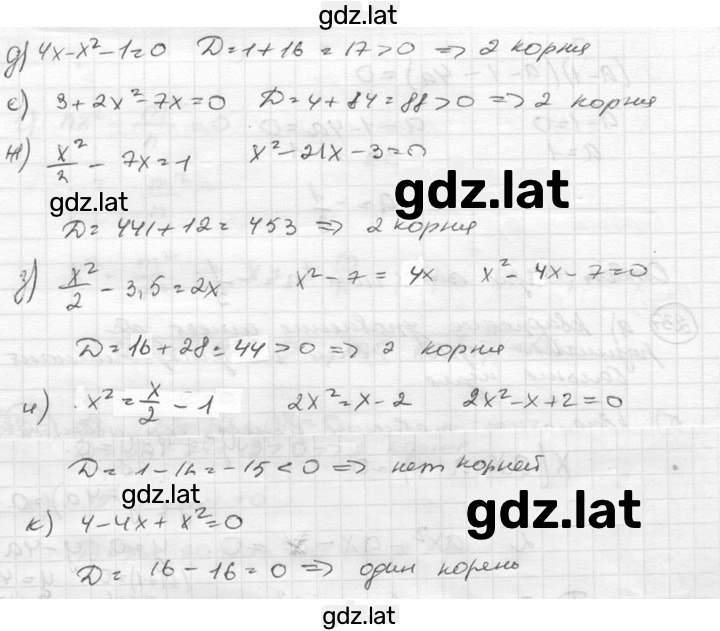 gdz.lat
д) 4x-x²-1=0 D=1+16=17>0 => 2 корня
е) 3+2x²-7x=0 D=4+84=88>0 => 2 корня
ж) x²/2 - 7x=1 x²-21x-3=0
gdz.lat
gdz.lat
D=441+12=453 => 2 корня
з) x²/2 - 3,5=2x x²-7=4x x²-4x-7=0
D=16+28=44>0 => 2 корня
и) x²=x/2 - 1 2x²=x-2 2x²-x+2=0
D=1-16=-15<0 => нет корней
gdz.lat
gdz.lat
к) 4-4x+x²=0
D=16-16=0 => один корень
gdz.lat